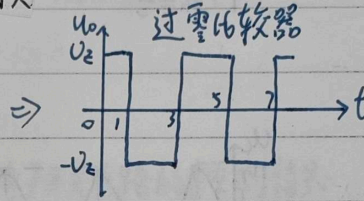 u₀ 过零比较器
U_Z
⇒ 0 1 3 5 7 t
-U_Z